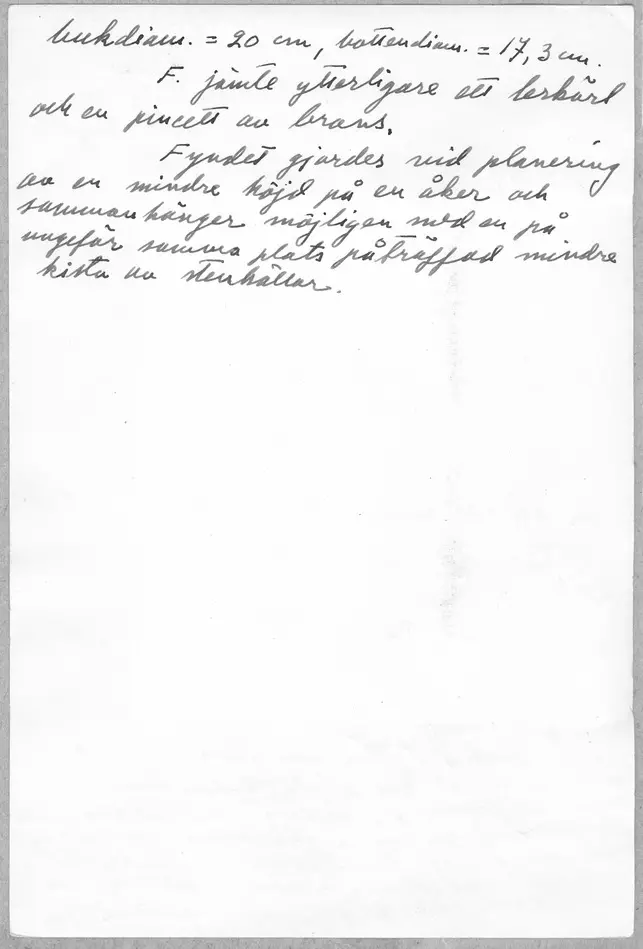 bukdiam. = 20 cm, bottendiam. = 17,3 cm.
F. jämte ytterligare ett lerkärl
och en pincett av brons.
Fyndet gjordes vid planering
av en mindre höjd på en åker och
sammanhänger möjligen med en på
ungefär samma plats påträffad mindre
kista av stenhällar.